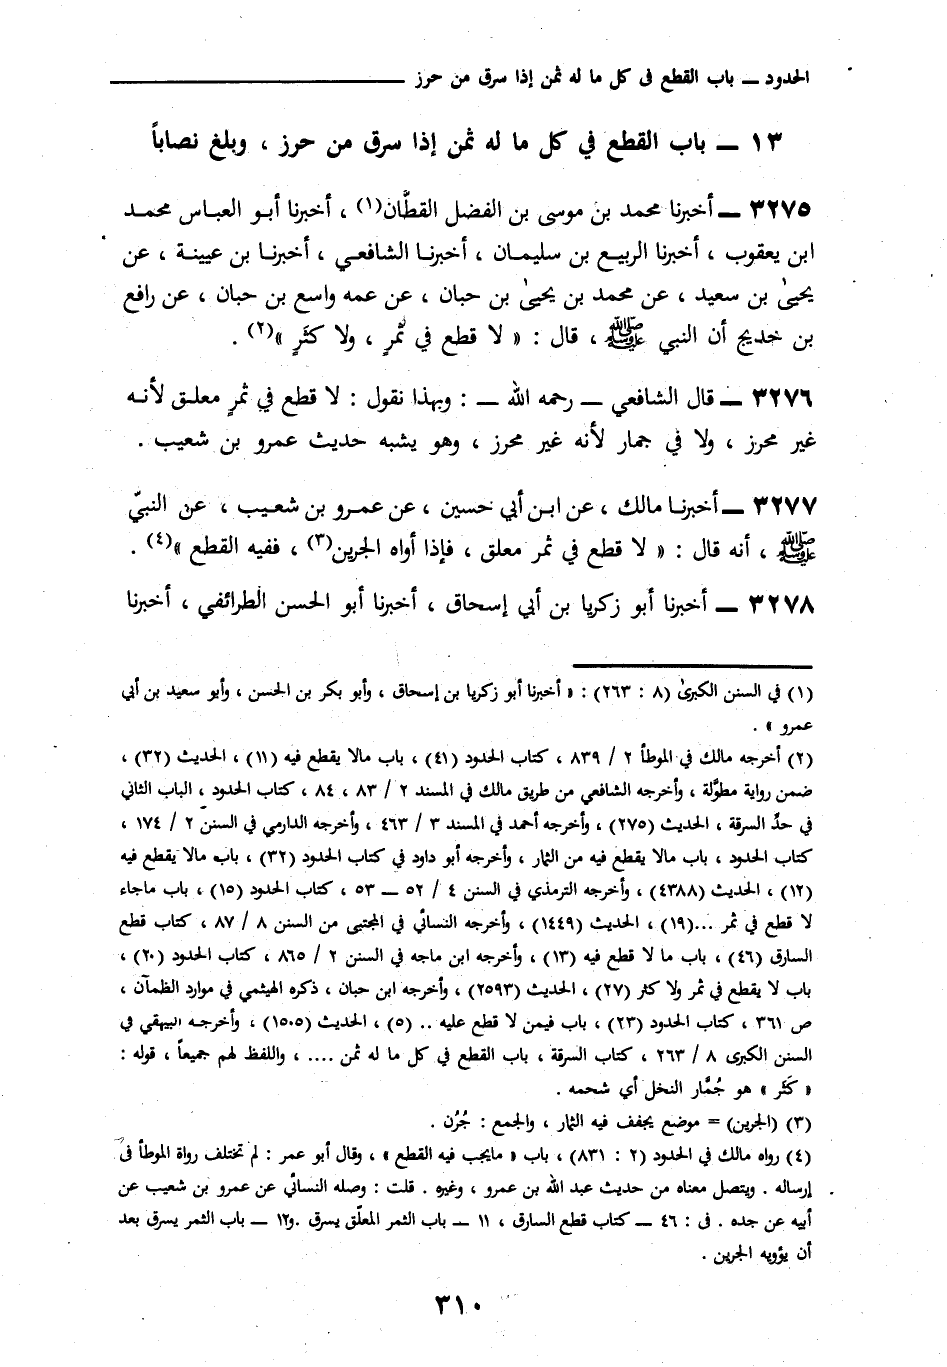 الحدود ــ باب القطع فى كل ما له ثمن إذا سرق من حرز
١٣ ــ باب القطع في كل ما له ثمن إذا سرق من حرز ، وبلغ نصاباً
٣٢٧٥ ــ أخبرنا محمد بن موسى بن الفضل القطَّان(١) ، أخبرنا أبو العباس محمد
ابن يعقوب ، أخبرنا الربيع بن سليمان ، أخبرنا الشافعي ، أخبرنا بن عيينة ، عن
يحيىٰ بن سعيد ، عن محمد بن يحيىٰ بن حبان ، عن عمه واسع بن حبان ، عن رافع
بن خديج أن النبي ﷺ ، قال : « لا قطع في ثَمَرٍ ، ولا كَثَرٍ »(٢) .
٣٢٧٦ ــ قال الشافعي ــ رحمه الله ــ : وبهذا نقول : لا قطع في ثمرٍ معلق لأنه
غير محرز ، ولا في جمار لأنه غير محرز ، وهو يشبه حديث عمرو بن شعيب .
٣٢٧٧ ــ أخبرنا مالك ، عن ابن أبي حسين ، عن عمرو بن شعيب ، عن النبيّ
ﷺ ، أنه قال : « لا قطع في ثمر معلق ، فإذا أواه الجرين(٣) ، ففيه القطع »(٤) .
٣٢٧٨ ــ أخبرنا أبو زكريا بن أبي إسحاق ، أخبرنا أبو الحسن الطرائفي ، أخبرنا
(١) في السنن الكبرىٰ (٨ : ٢٦٣) : « أخبرنا أبو زكريا بن إسحاق ، وأبو بكر بن الحسن ، وأبو سعيد بن أبي
عمرو » .
(٢) أخرجه مالك في الموطأ ٢ / ٨٣٩ ، كتاب الحدود (٤١) ، باب مالا يقطع فيه (١١) ، الحديث (٣٢) ،
ضمن رواية مطوَّلة ، وأخرجه الشافعي من طريق مالك في المسند ٢ / ٨٣ ، ٨٤ ، كتاب الحدود ، الباب الثاني
في حدِّ السرقة ، الحديث (٢٧٥) ، وأخرجه أحمد في المسند ٣ / ٤٦٣ ، وأخرجه الدارمي في السنن ٢ / ١٧٤ ،
كتاب الحدود ، باب مالا يقطع فيه من الثمار ، وأخرجه أبو داود في كتاب الحدود (٣٢) ، باب مالا يقطع فيه
(١٢) ، الحديث (٤٣٨٨) ، وأخرجه الترمذي في السنن ٤ / ٥٢ ــ ٥٣ ، كتاب الحدود (١٥) ، باب ماجاء
لا قطع في ثمر ...(١٩) ، الحديث (١٤٤٩) ، وأخرجه النسائي في المجتبى من السنن ٨ / ٨٧ ، كتاب قطع
السارق (٤٦) ، باب ما لا قطع فيه (١٣) ، وأخرجه ابن ماجه في السنن ٢ / ٨٦٥ ، كتاب الحدود (٢٠) ،
باب لا يقطع في ثمر ولا كثر (٢٧) ، الحديث (٢٥٩٣) ، وأخرجه ابن حبان ، ذكره الهيثمي في موارد الظمآن ،
ص ٣٦١ ، كتاب الحدود (٢٣) ، باب فيمن لا قطع عليه .. (٥) ، الحديث (١٥٠٥) ، وأخرجه البيهقي في
السنن الكبرى ٨ / ٢٦٣ ، كتاب السرقة ، باب القطع في كل ما له ثمن .... ، واللفظ لهم جميعاً ، قوله :
« كَثَر » هو جُمَّار النخل أي شحمه .
(٣) (الجرين) = موضع يجفف فيه الثمار ، والجمع : جُرُن .
(٤) رواه مالك في الحدود (٢ : ٨٣١) ، باب « مايجب فيه القطع » ، وقال أبو عمر : لم تختلف رواة الموطأ فى
إرساله . ويتصل معناه من حديث عبد الله بن عمرو ، وغيره . قلت : وصله النسائي عن عمرو بن شعيب عن
أبيه عن جده . فى : ٤٦ ــ كتاب قطع السارق ، ١١ ــ باب الثمر المعلّق يسرق .و١٢ ــ باب الثمر يسرق بعد
أن يؤويه الجرين .
٣١٠